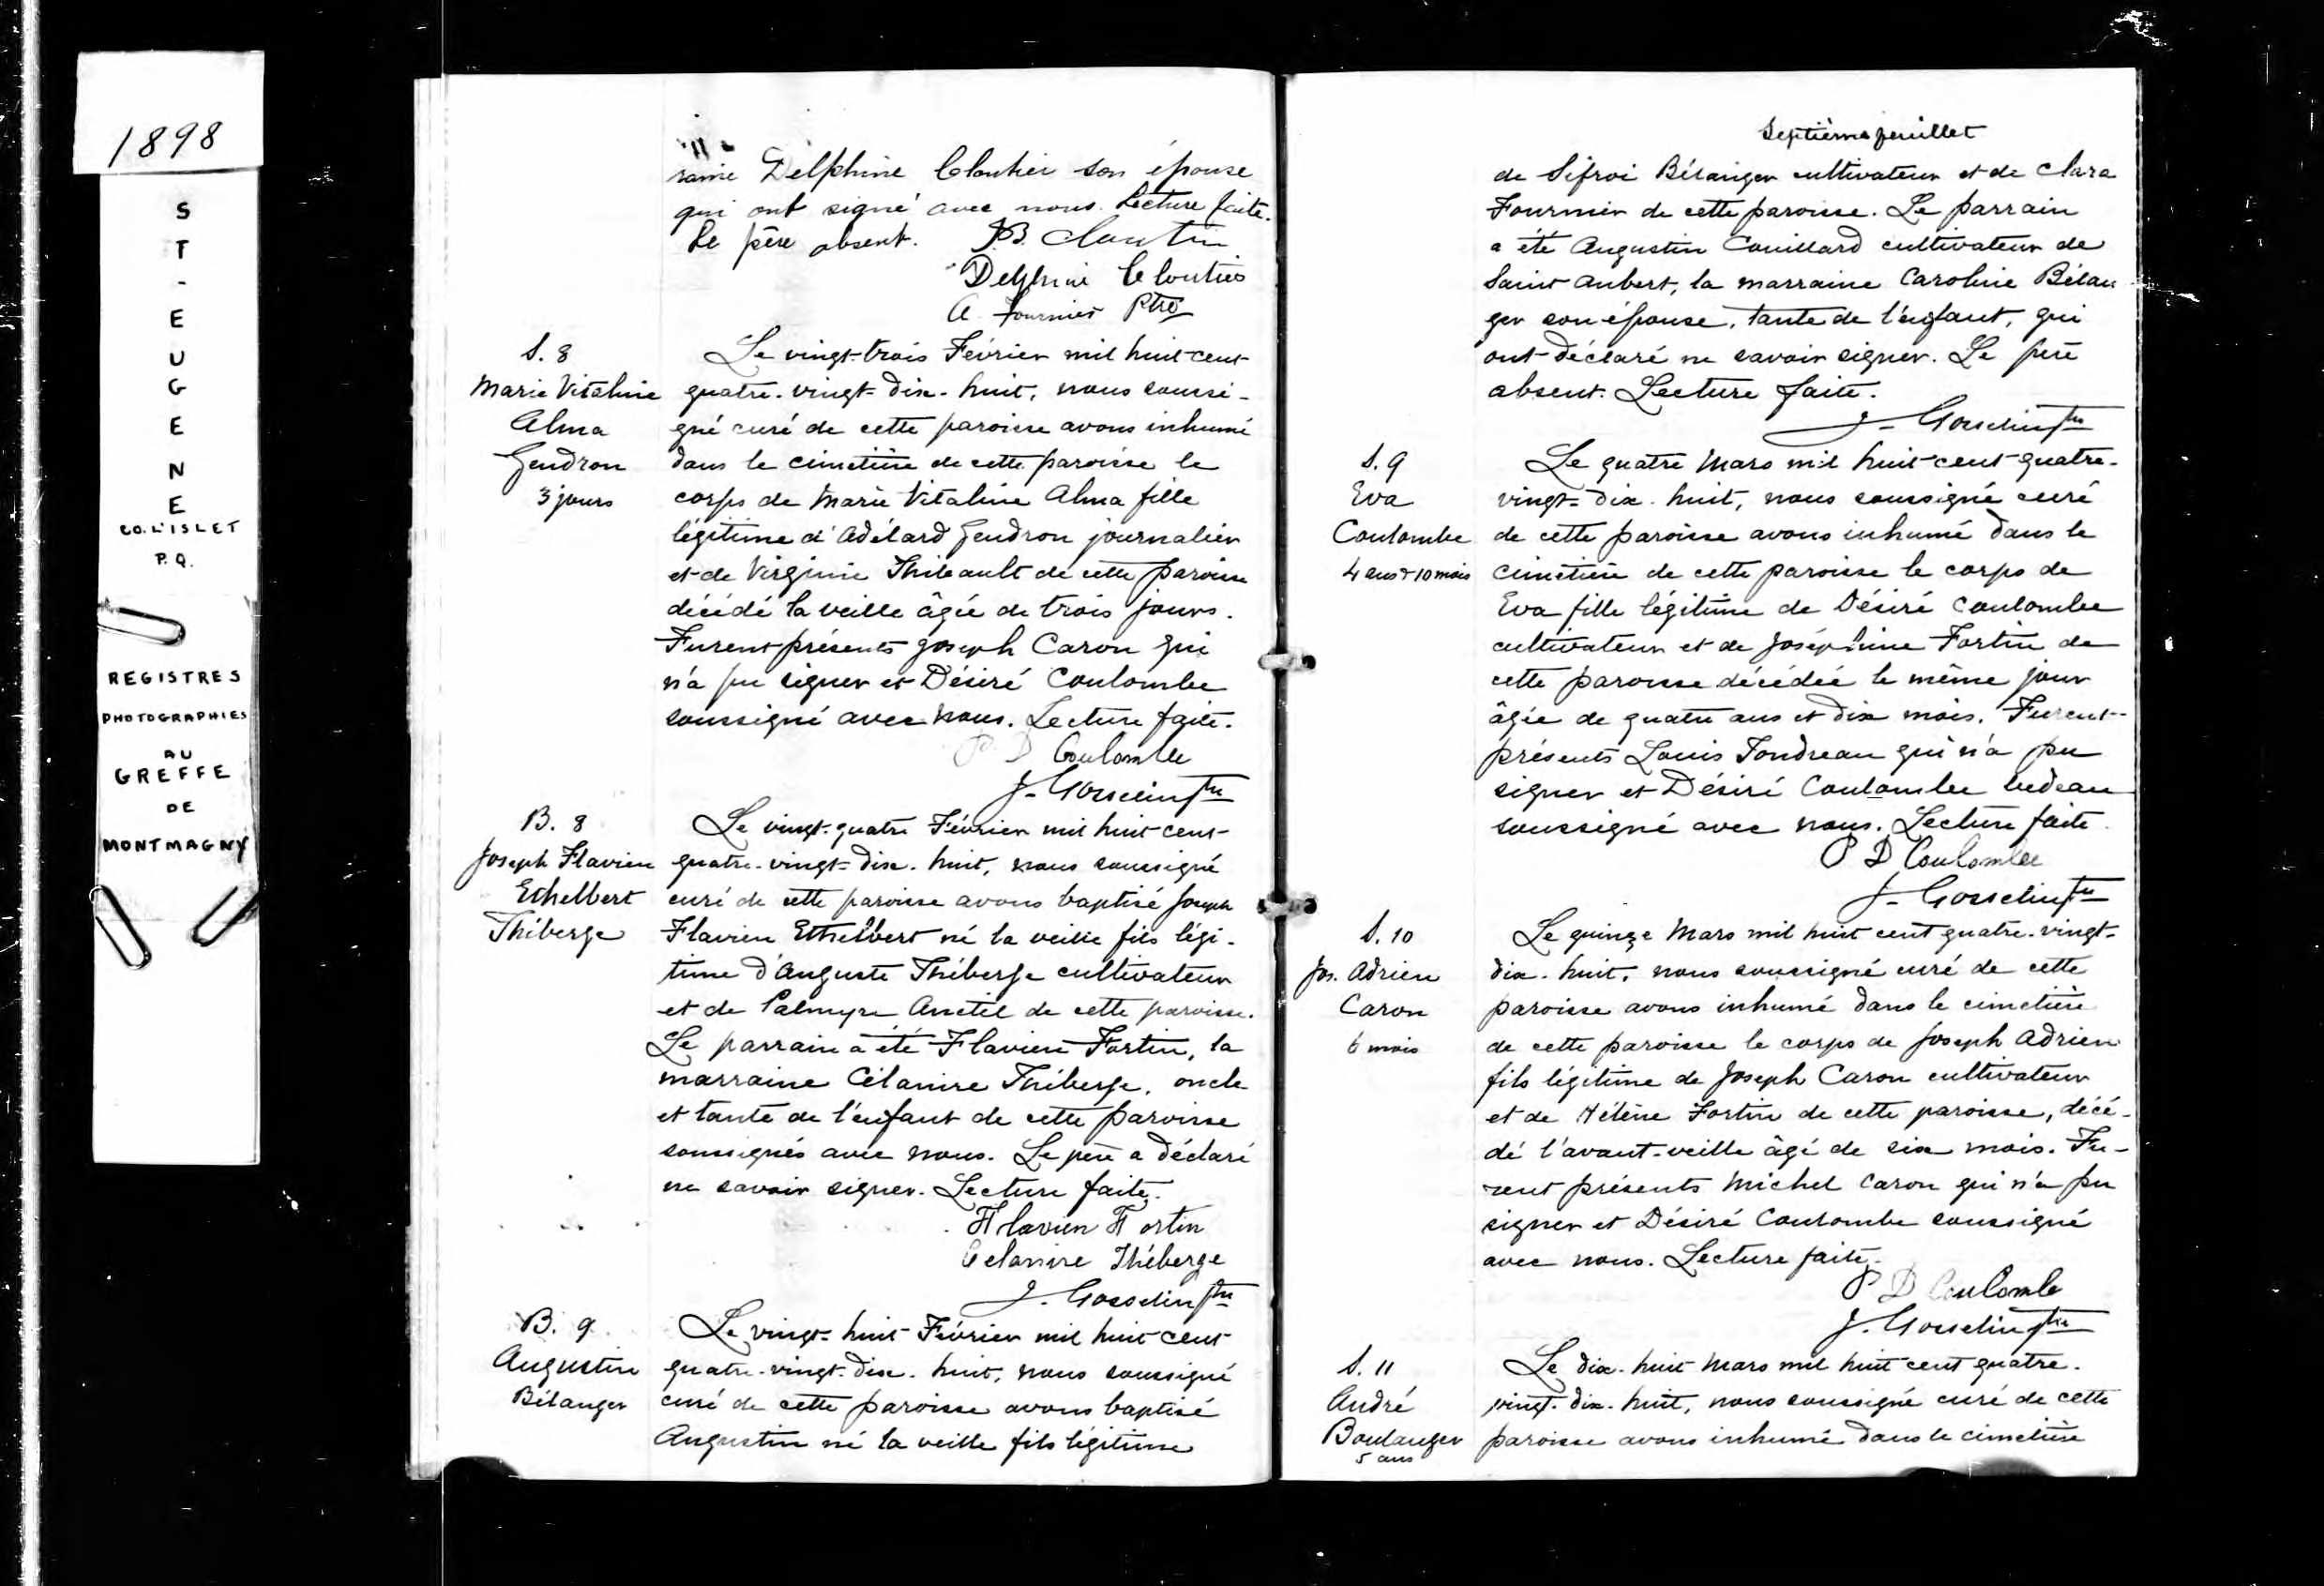 1898
ST-EUGENE
CO. L'ISLET
P.Q.
REGISTRES
PHOTOGRAPHIES
AU
GREFFE
DE
MONTMAGNY
raine Delphine Cloutier son épouse
qui ont signé avec nous. Lecture faite.
Le père absent. J.B. Cloutier
Delphine Cloutier
A. Fournier Ptre
S. 8
Marie Vitaline
Alma
Gendron
3 jours
Le vingt-trois Février mil huit-cent
quatre-vingt-dix-huit, nous soussi-
gné curé de cette paroisse avons inhumé
dans le cimetière de cette paroisse le
corps de Marie Vitaline Alma fille
légitime d'Adélard Gendron journalier
et de Virginie Thibault de cette paroisse
décédé la veille âgée de trois jours.
Furent présents Joseph Caron qui
n'a pu signer et Désiré Coulombe
soussigné avec nous. Lecture faite.
P D Coulombe
J. Gosselin Ptre
B. 8
Joseph Flavien
Ethelbert
Théberge
Le vingt-quatre Février mil huit-cent-
quatre-vingt-dix-huit, nous soussigné
curé de cette paroisse avons baptisé Joseph
Flavien Ethelbert né la veille fils légi-
time d'Auguste Théberge cultivateur
et de Palmyre Anctil de cette paroisse.
Le parrain a été Flavien Fortin, la
marraine Célanire Théberge, oncle
et tante de l'enfant de cette paroisse
soussignés avec nous. Le père a déclaré
ne savoir signer. Lecture faite.
Flavien Fortin
Celanire Théberge
J. Gosselin Ptre
B. 9
Augustin
Bélanger
Le vingt-huit Février mil huit cent
quatre-vingt-dix-huit, nous soussigné
curé de cette paroisse avons baptisé
Augustin né la veille fils légitime
Septième feuillet
de Sifroi Bélanger cultivateur et de Clara
Fournier de cette paroisse. Le parrain
a été Augustin Couillard cultivateur de
Saint Aubert, la marraine Caroline Bélan
ger son épouse, tante de l'enfant, qui
ont déclaré ne savoir signer. Le père
absent. Lecture faite.
J. Gosselin Ptre
S. 9
Eva
Coulombe
4 ans & 10 mois
Le quatre Mars mil huit-cent-quatre-
vingt-dix-huit, nous soussigné curé
de cette paroisse avons inhumé dans le
cimetière de cette paroisse le corps de
Eva fille légitime de Désiré Coulombe
cultivateur et de Joséphine Fortin de
cette paroisse décédée le même jour
âgée de quatre ans et dix mois. Furent-
présents Louis Tondreau qui n'a pu
signer et Désiré Coulombe bedeau
soussigné avec nous. Lecture faite.
P D Coulombe
J. Gosselin Ptre
S. 10
Jos. Adrien
Caron
6 mois
Le quinze Mars mil huit cent quatre-vingt-
dix-huit, nous soussigné curé de cette
paroisse avons inhumé dans le cimetière
de cette paroisse le corps de Joseph Adrien
fils légitime de Joseph Caron cultivateur
et de Hélène Fortin de cette paroisse, décé-
dé l'avant-veille âgé de six mois. Fu-
rent présents Michel Caron qui n'a pu
signer et Désiré Coulombe soussigné
avec nous. Lecture faite.
P D Coulombe
J. Gosselin Ptre
S. 11
André
Boulanger
5 ans
Le dix-huit Mars mil huit cent quatre-
vingt-dix-huit, nous soussigné curé de cette
paroisse avons inhumé dans le cimetière